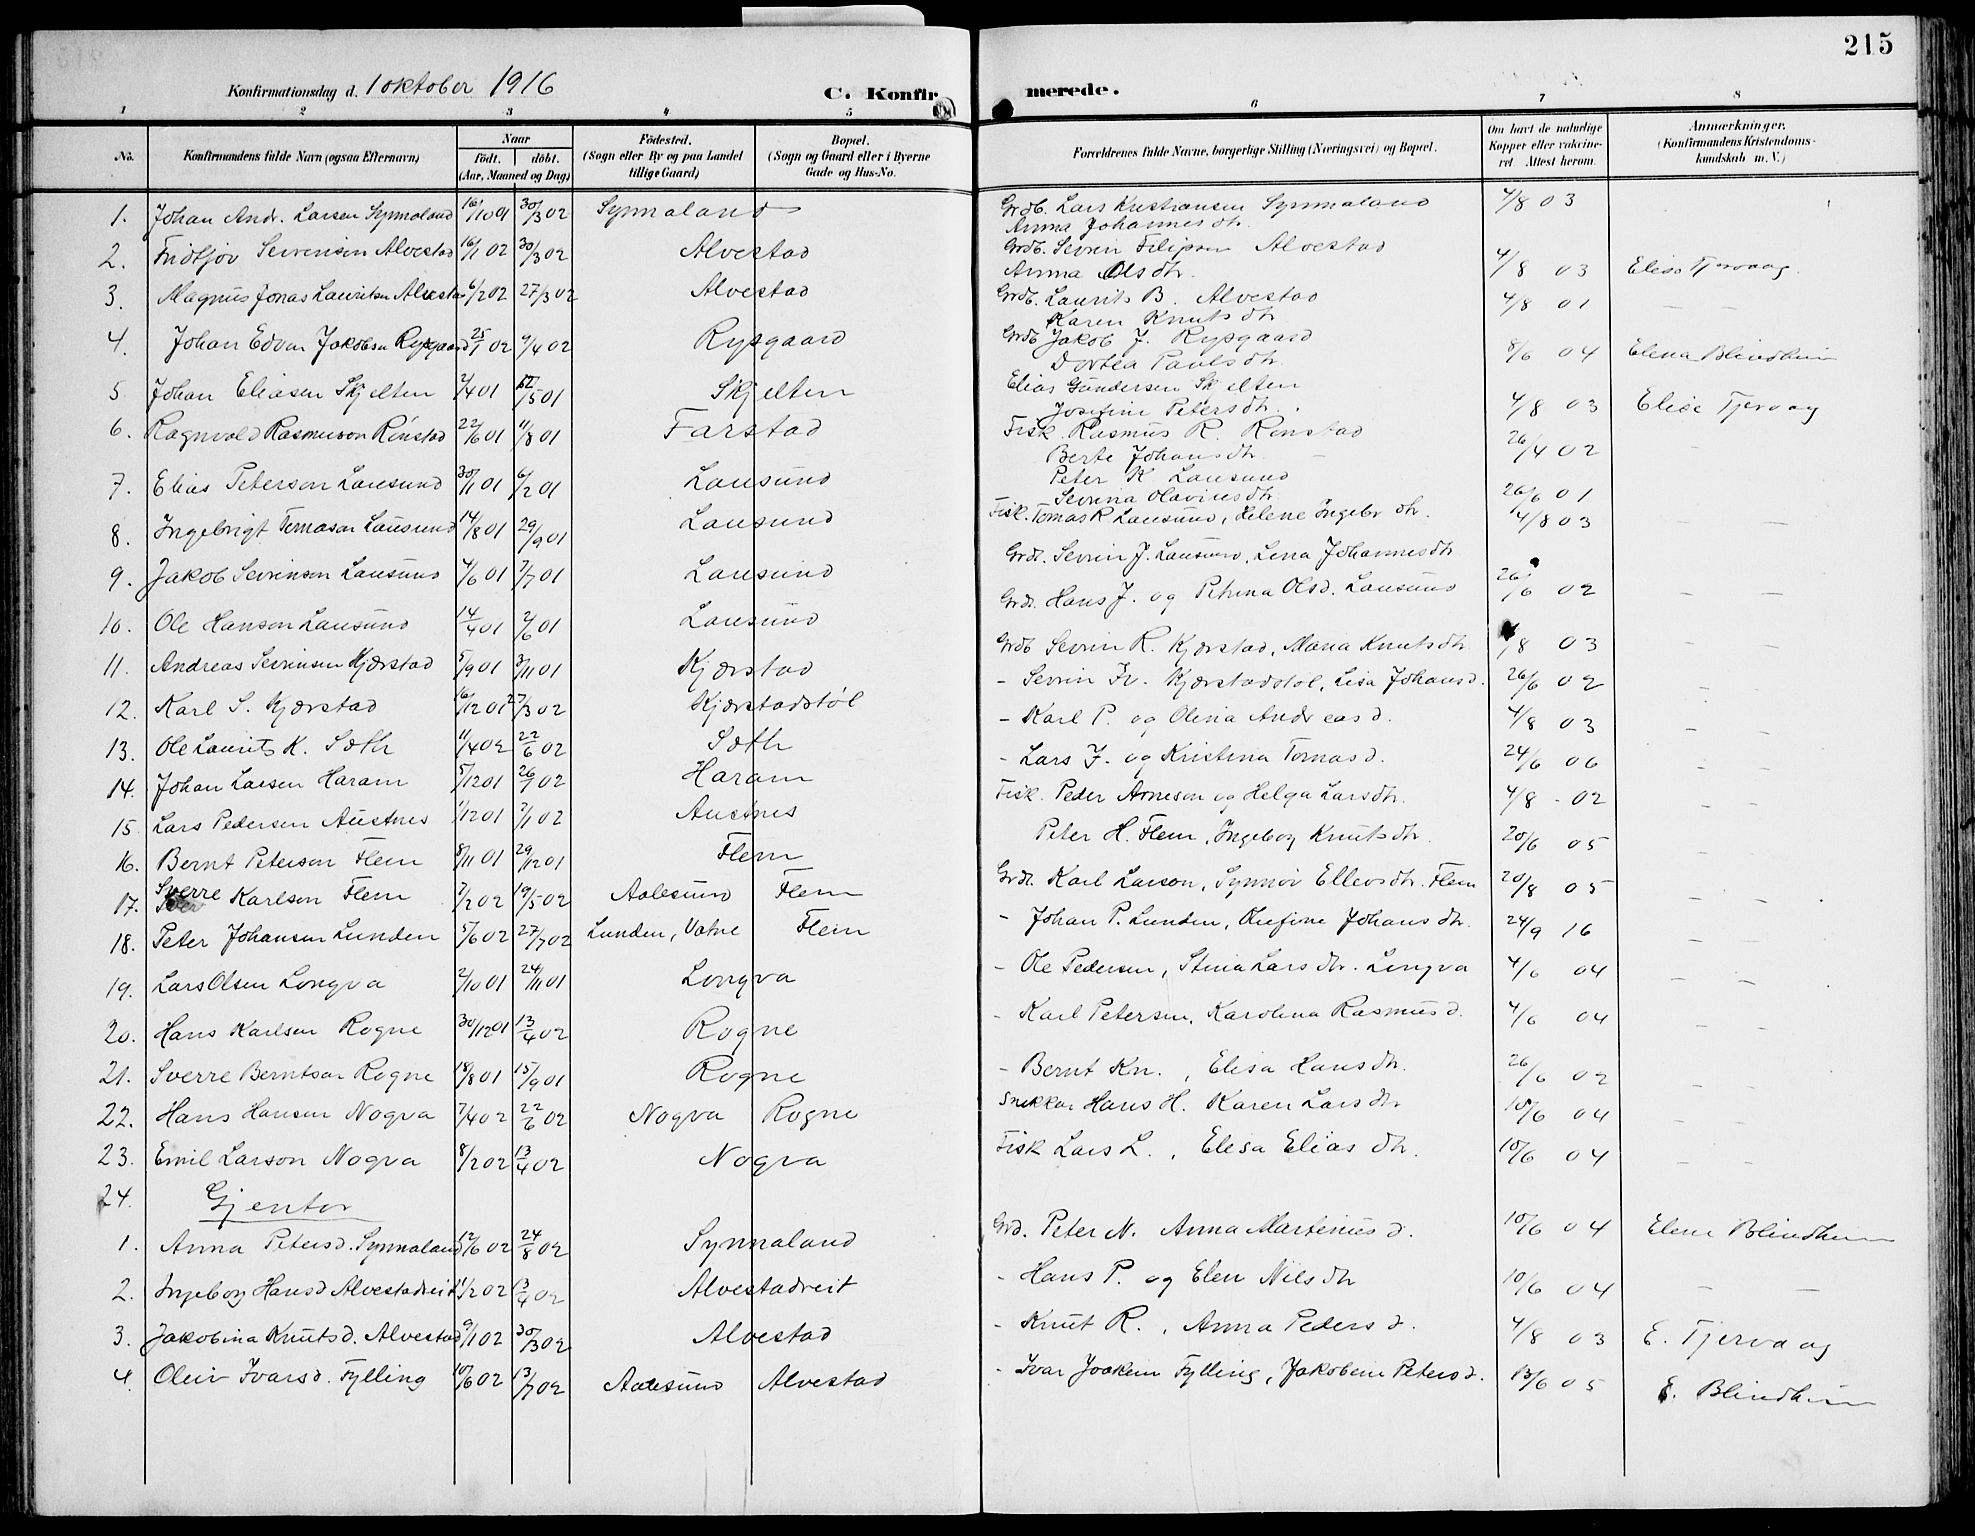 215
Konfirmationsdag d. 1 oktober 1916 C. Konfirmerede.
1 2 3 4 5 6 7 8
No. Konfirmandens fulde Navn (ogsaa Efternavn) Naar født. døbt. (Aar, Maaned og Dag) Fødested. (Sogn eller By og paa Landet tillige Gaard) Bopæl. (Sogn og Gaard eller i Byerne Gade og Hus-No. Forældrenes fulde Navne, borgerlige Stilling (Næringsvei) og Bopæl. Om havt de naturlige Kopper eller vaccineret Attest herom. Anmærkninger. (Konfirmandens Kristendomskundskab m. V.)
1. Johan Andr. Larsen Synnaland 16/10 01 30/3 02 Synnaland Grdb. Lars Kristiansen Synnaland 4/8 03
Anna Johannesdtr.
2. Fridtjov Sevrensen Alvestad 16/1 02 30/3 02 Alvestad Grdb. Sevrin Filipsen Alvestad
Anna Olsdtr. 4/8 03 Elise Tjervaag
3. Magnus Jonas Lauritsen Alvestad 6/2 02 27/3 02 Alvestad Grdb. Laurits B. Alvestad 4/8 01 — —
Karen Knutsdtr
4. Johan Edvan Jakobsen Rypgaard 25/1 02 9/4 02 Rypgaard Grdb Jakob J. Rypgaard
Dortea Paulsdtr. 8/6 04 Elena Blindheim
5 Johan Eliasen Skjelten 2/4 01 /5 01 Skjelten Elias Gundersen Skjelten
Josefine Petersdtr. 4/8 03 Elise Tjervaag
6. Ragnvald Rasmuson Rinstad 22/6 01 11/8 01 Farstad Fisk. Rasmus R. Rinstad
Berte Johansdtr. 26/4 02
7. Elias Peterson Lausund 30/11 01 6/2 01 Lausund Peter K Lausund
Sevrina Olavinesdtr. 26/6 01
8. Ingebrigt Tomasen Lausund 14/8 01 29/9 01 Lausund Fisk. Tomas R Lausund, Helene Ingebr dtr. 4/8 03 — —
9. Jakob Sevrinsen Lausund 4/6 01 7/7 01 Lausund Grdr. Sevrin J. Lausund, Lena Johannesdtr
10. Ole Hanson Lausund 14/4 01 2/6 01 Lausund Grdr. Hans J. og Petrina Olsd. Lausund 26/6 02 — —
11. Andreas Sevrinsen Kjærstad 5/9 01 3/11 01 Kjærstad Grdb Sevrin R. Kjærstad, Maria Knutsdtr. 4/8 03 — —
12. Karl S. Kjærstad 16/12 01 27/3 02 Kjærstadstøl - Sevrin Fr. Kjærstadstøl, Lisa Johansd. 26/6 02 — —
13. Ole Laurits K. Sæth 11/4 02 22/6 02 Sæth - Karl P. og Olina Andreasd. 4/8 03 — —
14. Johan Larsen Haram 5/12 01 26/1 02 Haram - Lars J. og Kristina Tomasd. 24/6 06 — —
15. Lars Pedersen Austnes 1/12 01 2/1 02 Austnes Fisk. Peder Arneson og Helga Larsdtr. 4/8 - 02 — —
16. Bernt Peterson Flem 8/11 01 29/12 01 Flem Peter H. Flem, Ingeborg Knutsdtr. 20/6 05 —
17. Sverre Karlsen Flem 7/2 02 19/5 02 Aalesund Flem Grdr. Karl Larson, Synnøv Ellevsdtr. Flem 20/8 05 — —
18. Peter Johansen Lunden 5/6 02 27/7 02 Lunden, Vatne Flem - Johan P. Lunden, Olufine Johansdtr. 24/9 16 — —
19. Lars Olsen Longva 2/10 01 24/11 01 Longva - Ole Pedersen, Stina Larsdtr. Longva 4/6 04 — —
20. Hans Karlsen Rogne 30/12 01 13/4 02 Rogne - Karl Petersen, Karolina Rasmusd. 4/6 04 — —
21. Sverre Berntsen Rogne 18/8 01 15/9 01 Rogne - Bernt Kn. , Elisa Hansdtr. 26/6 02 — —
22. Hans Hansen Nogva 7/4 02 22/6 02 Nogva Rogne Snekkar Hans H. Karen Larsdtr 10/6 04 — —
23. Emil Larson Nogva 8/2 02 13/4 02 Nogva Fisk Lars L. , Elisa Elias dtr. 10/6 04 — —
24. Gjentor
1. Anna Petersd. Synnaland 12/6 02 24/8 02 Synnaland Grd. Peter N. Anna Martinusd. 10/6 04 Elene Blindheim
2. Ingeborg Hansd Alvestadreit 1/2 02 13/4 02 Alvestadreit - Hans P. og Elen Nilsdtr 10/6 04 — —
3. Jakobina Knutsd. Alvestad 9/1 02 30/3 02 Alvestad - Knut R. , Anna Pedersd. 4/8 03 E. Tjervaag
4. Oleiv Ivarsd. Fylling 10/6 02 13/7 02 Aalesund Alvestad - Ivar Joakim Fylling, Jakobine Petersd. 13/6 05 E. Blindheim